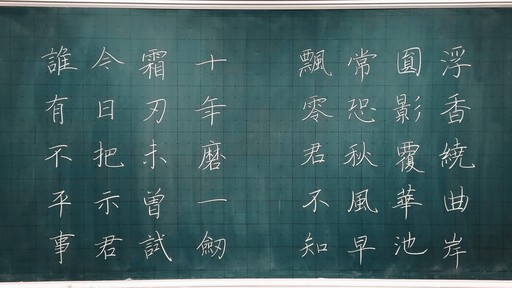 浮香繞曲岸
圓影覆華池
常恐秋風早
飄零君不知
十年磨一劒
霜刃未曾試
今日把示君
誰有不平事